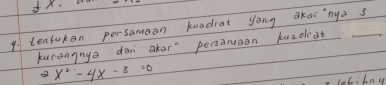 4. tentukan persamaan kuadrat yang akar"nya 3
kurangnya dari akar" persamaan kuadrat
2x² - 4x - 3 = 0